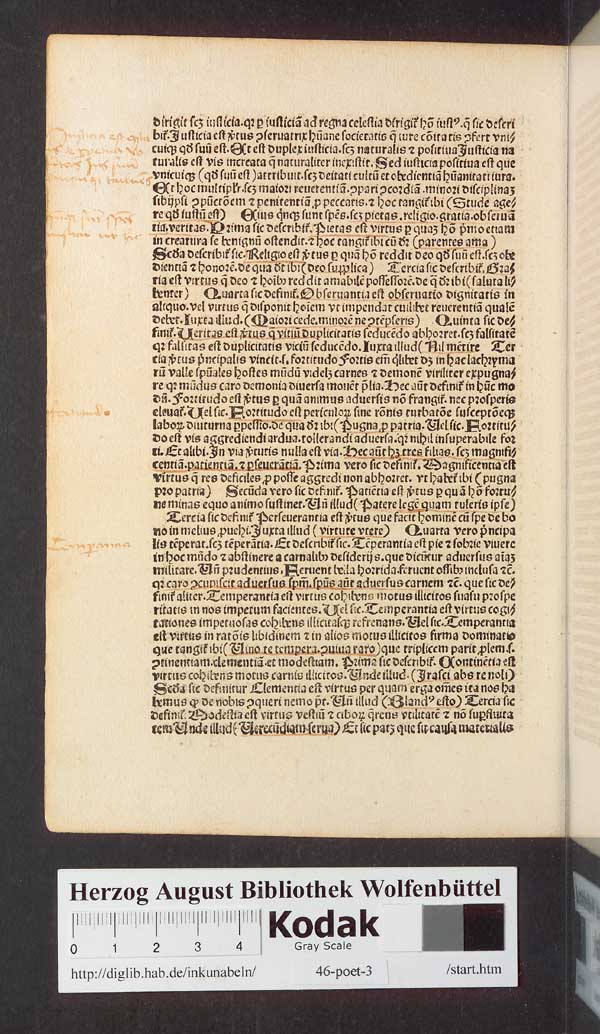 dirigit scȝ iusticia. qꝛ ꝑ iusticiã ad regna celestia dirigit̃ hõ iustꝰ. q̃ sic descri
bit̃. Justicia est ỹtus ꝯseruatrix hũane societatis q̃ iure cõitatis ꝯfert vni
cuiqȝ qď suũ est. Et est duplex iusticia. scȝ naturalis ⁊ positiua Justicia na
turalis est vis increata q̃ naturaliter inexistit. Sed iusticia positiua est que
vnicuiqȝ (qď suũ est) attribuit. scȝ deitati cultũ et obedientiã hũanitati iura.
Et hoc multiplr̃. scȝ maiori reuerentiã. ꝯpari ꝯcoꝛdiã. minori disciplinaȝ
sibijpsi ꝯpũctõem ⁊ penitentiã ꝓ peccatis. ⁊ hoc tangit̃ ibi (Stude age
re qď iustũ est) Eius qñqȝ sunt spẽs. scȝ pietas. religio. gratia. obseruã
tia. veritas. Prima sic describit̃. Pietas est virtus ꝑ quaȝ hõ pͥmo etiam
in creatura se benignũ ostendit. ⁊ hoc tangit̃ ibi cũ dr̃ (parentes ama)
Secďa describit̃ sic. Religio est ỹtus ꝑ quã hõ reddit deo qď suũ est. scȝ obe
dientiã ⁊ honorẽ. de qua dr̃ ibi (deo supplica) Tercia sic describit̃. Gra
tia est virtus q̃ deo ⁊ hoĩbꝰ reddit amabilẽ possessorẽ. de q̃ dr̃ ibi (saluta li
benter) Quarta sic definit̃. Obseruantia est obseruatio dignitatis in
aliquo. vel virtus q̃ disponit hoiem vt impendat cuilibet reuerentiã qualẽ
debet. Juxta illud. (Maiori cede. minorẽ ne ꝯtẽpseris) Quinta sic de
finit̃. Ueritas est ỹtus q̃ vitiũ duplicitatis seducẽdo abhorret. scȝ falsitatẽ
qꝛ falsitas est duplicitatis viciũ seducẽdo. Juxta illud (Nil mẽtire Ter
cia ỹtus pͥncipalis vincit. s. fortitudo Fortis em̃ q̃libet dȝ in hac lachryma
rũ valle spũales hostes mũdũ videlȝ carnes ⁊ demonẽ viriliter expugna
re qꝛ mũdus caro demonia diuersa mouẽt p̃lia. Hec aũt definit̃ in hũc mo
dũ. Fortitudo est ỹtus ꝑ quã animus aduersis nõ frangit̃. nec prosperis
eleuat̃. Uel sic. Fortitudo est periculoꝝ siue
do est vis aggrediendi ardua. tollerandi aduersa. qꝛ nihil insuperabile for
ti. Et alibi. In via ỹtutis nulla est via. Hec aũt hȝ tres filias. scȝ magnifi
centiã. patientiã. ⁊ ꝑseuerãtiã. Prima vero sic definit̃. Magnificentia est
virtus q̃ res deficiles ꝓ posse aggredi non abhorret. vt habet̃ ibi (pugna
pro patria) Secũda vero sic definit̃. Patiẽtia est ỹtus ꝑ quã hõ fortu
ne minas equo animo sustinet. Uñ illud (Patere legẽ quam tuleris ipse)
Tercia sic definit̃ Perseuerantia est ỹtus que facit hominẽ cũ spe de bo
no in melius ꝓuehi. Juxta illud (virtute vtere) Quarta vero pͥncipa
lis tẽperat. scȝ tẽperãtia. Et describit̃ sic. Tẽperantia est pie ⁊ sobrie viuere
in hoc mũdo ⁊ abstinere a carnalibꝰ desiderijs. que dicũtur aduersus aĩaȝ
militare. Uñ prudentius. Feruent bella horrida. feruent ossibꝰ inclusa ⁊c̃.
qꝛ caro ꝯcupiscit aduersus spm̃. spũs aũt aduersus carnem ⁊c̃. que sic de
finit̃ aliter. Temperantia est virtus cohibens motus illicitos suasu prospe
ritatis in nos impetum facientes. Uel sic. Temperantia est virtus cogi
tationes impetuosas cohibens illicitasqȝ refrenans. Uel sic. Temperantia
est virtus in ratõis libidinem ⁊ in alios motus illicitos firma dominatio
que tangit̃ ibi (Uino te tempera. ꝯuiua raro) que triplicem parit ꝓlem. s.
ꝯtinentiam. clementiã. et modestiam. Prima sic describit̃. Continẽtia est
virtus cohibens motus carnis illicitos. Unde illud. (Irasci abs re noli)
Secďa sic definitur Clementia est virtus per quam erga om̃es ita nos ha
bemus ꝙ de nobis ꝯqueri nemo pt̃. Uñ illud (Blandꝰ esto) Tercia sic
definit̃. Modestia est virtus vestiũ ⁊ ciboꝝ q̃rens vtilitatẽ ⁊ nõ suꝑfluita
tem Unde illud (Uerecũdiam serua) Et sic patȝ que sit causa materialis
fortitudo
Temperancia
Herzog August Bibliothek Wolfenbüttel
0 1 2 3 4
Kodak
Gray Scale
http://diglib.hab.de/inkunabeln/ 46-poet-3 /start.htm